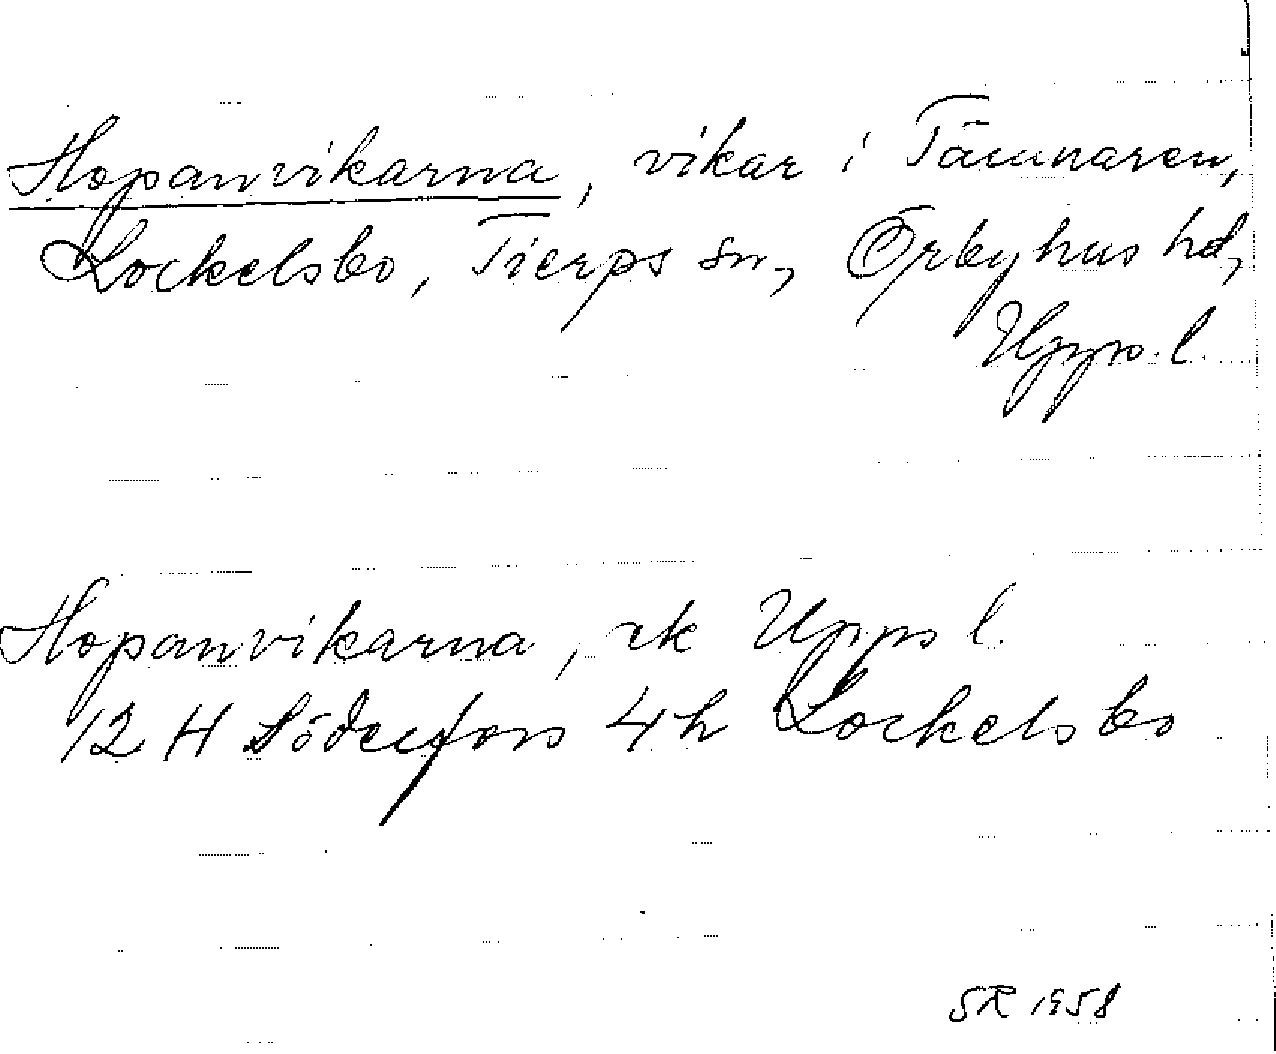 Hopanvikarna, vikar i Tämnaren,
Lockelsbo, Tierps sn, Örbyhus hd,
Upps. l.
Hopanvikarna, ek Upps l.
12 H Söderfors 4h Lockelsbo
SR 1958